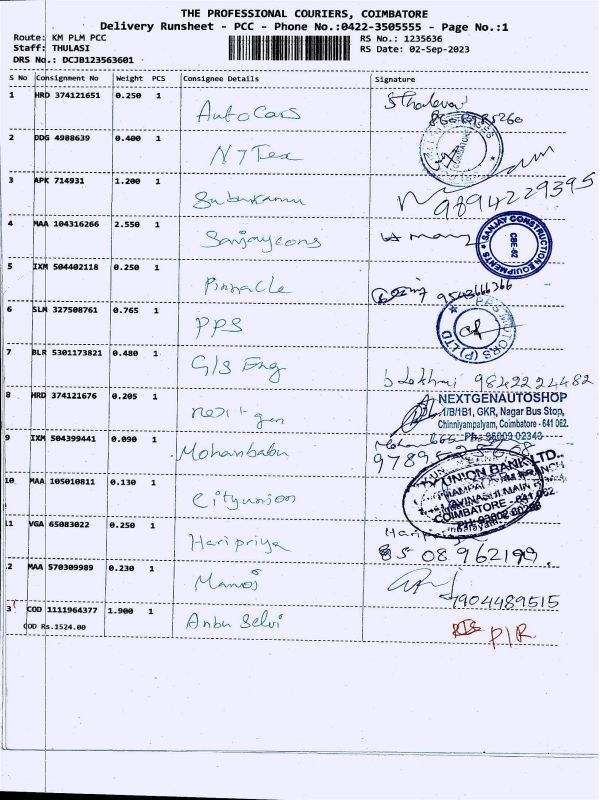 THE PROFESSIONAL COURIERS, COIMBATORE
Delivery Runsheet - PCC - Phone No.:0422-3505555 - Page No.:1
Route: KM PLM PCC
RS No.: 1235636
Staff: THULASI
RS Date: 02-Sep-2023
DRS No.: DCJB123563601
S No Consignment No Weight PCS Consignee Details Signature
1 HRD 374121651 0.250 1 AutoCars
2 DDG 4988639 0.400 1 N7Tex
3 APK 714931 1.200 1
9894229395
4 MAA 104316266 2.550 1 Sanjaycons
SANJAY CONSTRUCTION EQUIPMENTS CBE-62
5 IXM 504402118 0.250 1 Pinnacle
9543666366
6 SLM 327508761 0.765 1 PPS
PPS MOTORS (P) LTD
7 BLR 5301173821 0.480 1 G/S Eng
9842224482
8 HRD 374121676 0.205 1 next-gen
NEXTGENAUTOSHOP
1/B/1B1, GKR, Nagar Bus Stop,
Chinniyampalyam, Coimbatore - 641 062.
Ph: 96009 02343
9 IXM 504399441 0.090 1 Mohanbabu
10 MAA 105010811 0.130 1 Cityunion
CITY UNION BANK LTD.,
AVINASHI MAIN R
COIMBATORE - 641 062.
11 VGA 65083022 0.250 1 Haripriya
Haripriya
85 08 962199
2 MAA 570309989 0.230 1 Manoj
9904489515
3 COD 1111964377 1.900 1 Anbu Selvi
COD Rs.1524.00
P/R